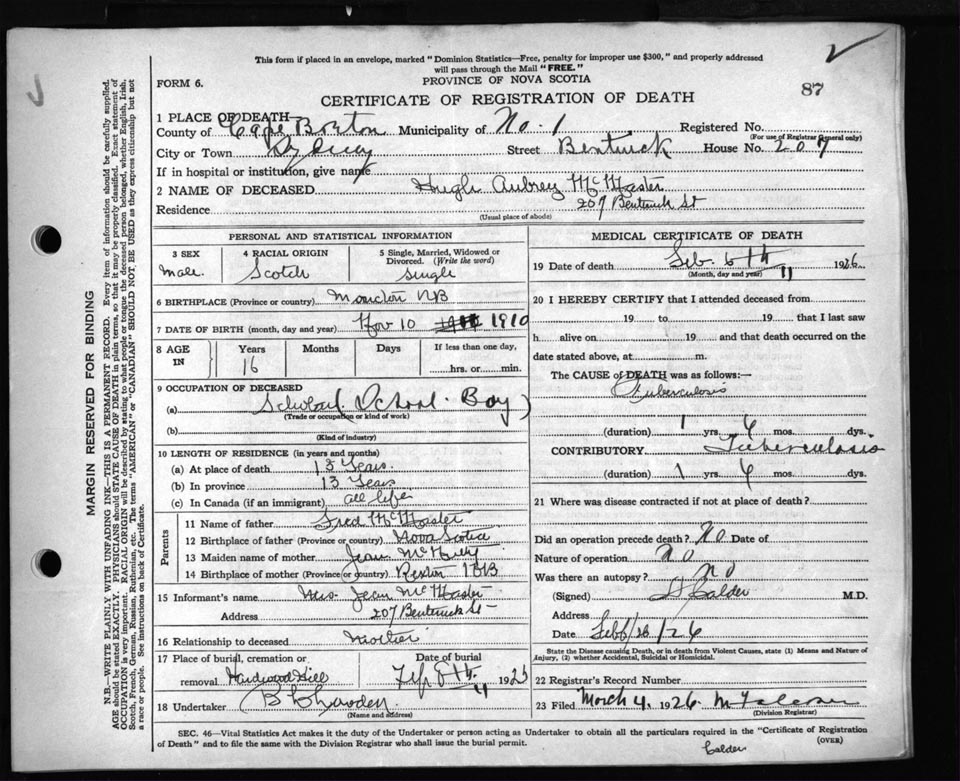 This form if placed in an envelope, marked "Dominion Statistics—Free, penalty for improper use $300," and properly addressed
will pass through the Mail "FREE."
FORM 6.
PROVINCE OF NOVA SCOTIA
87
CERTIFICATE OF REGISTRATION OF DEATH
1 PLACE OF DEATH—
County of Cape Breton Municipality of No. 1 Registered No.
(For use of Registrar General only)
City or Town Sydney Street Bentinck House No. 207
If in hospital or institution, give name
2 NAME OF DECEASED Hugh Aubrey McMaster
Residence 207 Bentinck St
(Usual place of abode)
PERSONAL AND STATISTICAL INFORMATION
3 SEX 4 RACIAL ORIGIN 5 Single, Married, Widowed or Divorced. (Write the word)
Male Scotch Single
6 BIRTHPLACE (Province or country) Moncton NB
7 DATE OF BIRTH (month, day and year) Nov 10 1910
8 AGE IN Years Months Days If less than one day,
16 hrs. or min.
9 OCCUPATION OF DECEASED
(a) School (School Boy)
(Trade or occupation or kind of work)
(b)
(Kind of industry)
10 LENGTH OF RESIDENCE (in years and months)
(a) At place of death 13 Years.
(b) In province 13 Years
(c) In Canada (if an immigrant) all life
Parents
11 Name of father Fred McMaster
12 Birthplace of father (Province or country) Nova Scotia
13 Maiden name of mother Jean
14 Birthplace of mother (Province or country) NB
15 Informant's name Mrs. Jean McMaster
Address 207 Bentinck St
16 Relationship to deceased Mother
17 Place of burial, cremation or removal Hardwood Hill
Date of burial 8th 1926
18 Undertaker
(Name and address)
MEDICAL CERTIFICATE OF DEATH
19 Date of death Feb. 6th 1926
(Month, day and year)
20 I HEREBY CERTIFY that I attended deceased from
19 to 19 that I last saw
h alive on 19 and that death occurred on the
date stated above, at m.
The CAUSE OF DEATH was as follows:—
Tuberculosis
(duration) 1 yrs. 6 mos. dys.
CONTRIBUTORY Tuberculosis
(duration) 1 yrs. 6 mos. dys.
21 Where was disease contracted if not at place of death?
Did an operation precede death? No Date of
Nature of operation No
Was there an autopsy? No
(Signed) Calder M.D.
Address
Date Feb 26
State the Disease causing Death, or in death from Violent Causes, state (1) Means and Nature of
Injury, (2) whether Accidental, Suicidal or Homicidal.
22 Registrar's Record Number
23 Filed March 4, 1926.
(Division Registrar)
SEC. 46—Vital Statistics Act makes it the duty of the Undertaker or person acting as Undertaker to obtain all the particulars required in the "Certificate of Registration
of Death" and to file the same with the Division Registrar who shall issue the burial permit. (OVER)
Calder
MARGIN RESERVED FOR BINDING
N.B.—WRITE PLAINLY WITH UNFADING INK—THIS IS A PERMANENT RECORD. Every item of information should be carefully supplied.
AGE should be stated EXACTLY. PHYSICIANS should STATE CAUSE OF DEATH in plain terms, so that it may be properly classified. Exact statement of
OCCUPATION is very important. RACIAL ORIGIN will be described by stating to what people or tongue the deceased person belonged, whether English, Irish,
Scotch, French, German, Russian, Ruthenian, etc. The terms "AMERICAN" or "CANADIAN" SHOULD NOT BE USED as they express citizenship but not
a race or people. See instructions on back of Certificate.